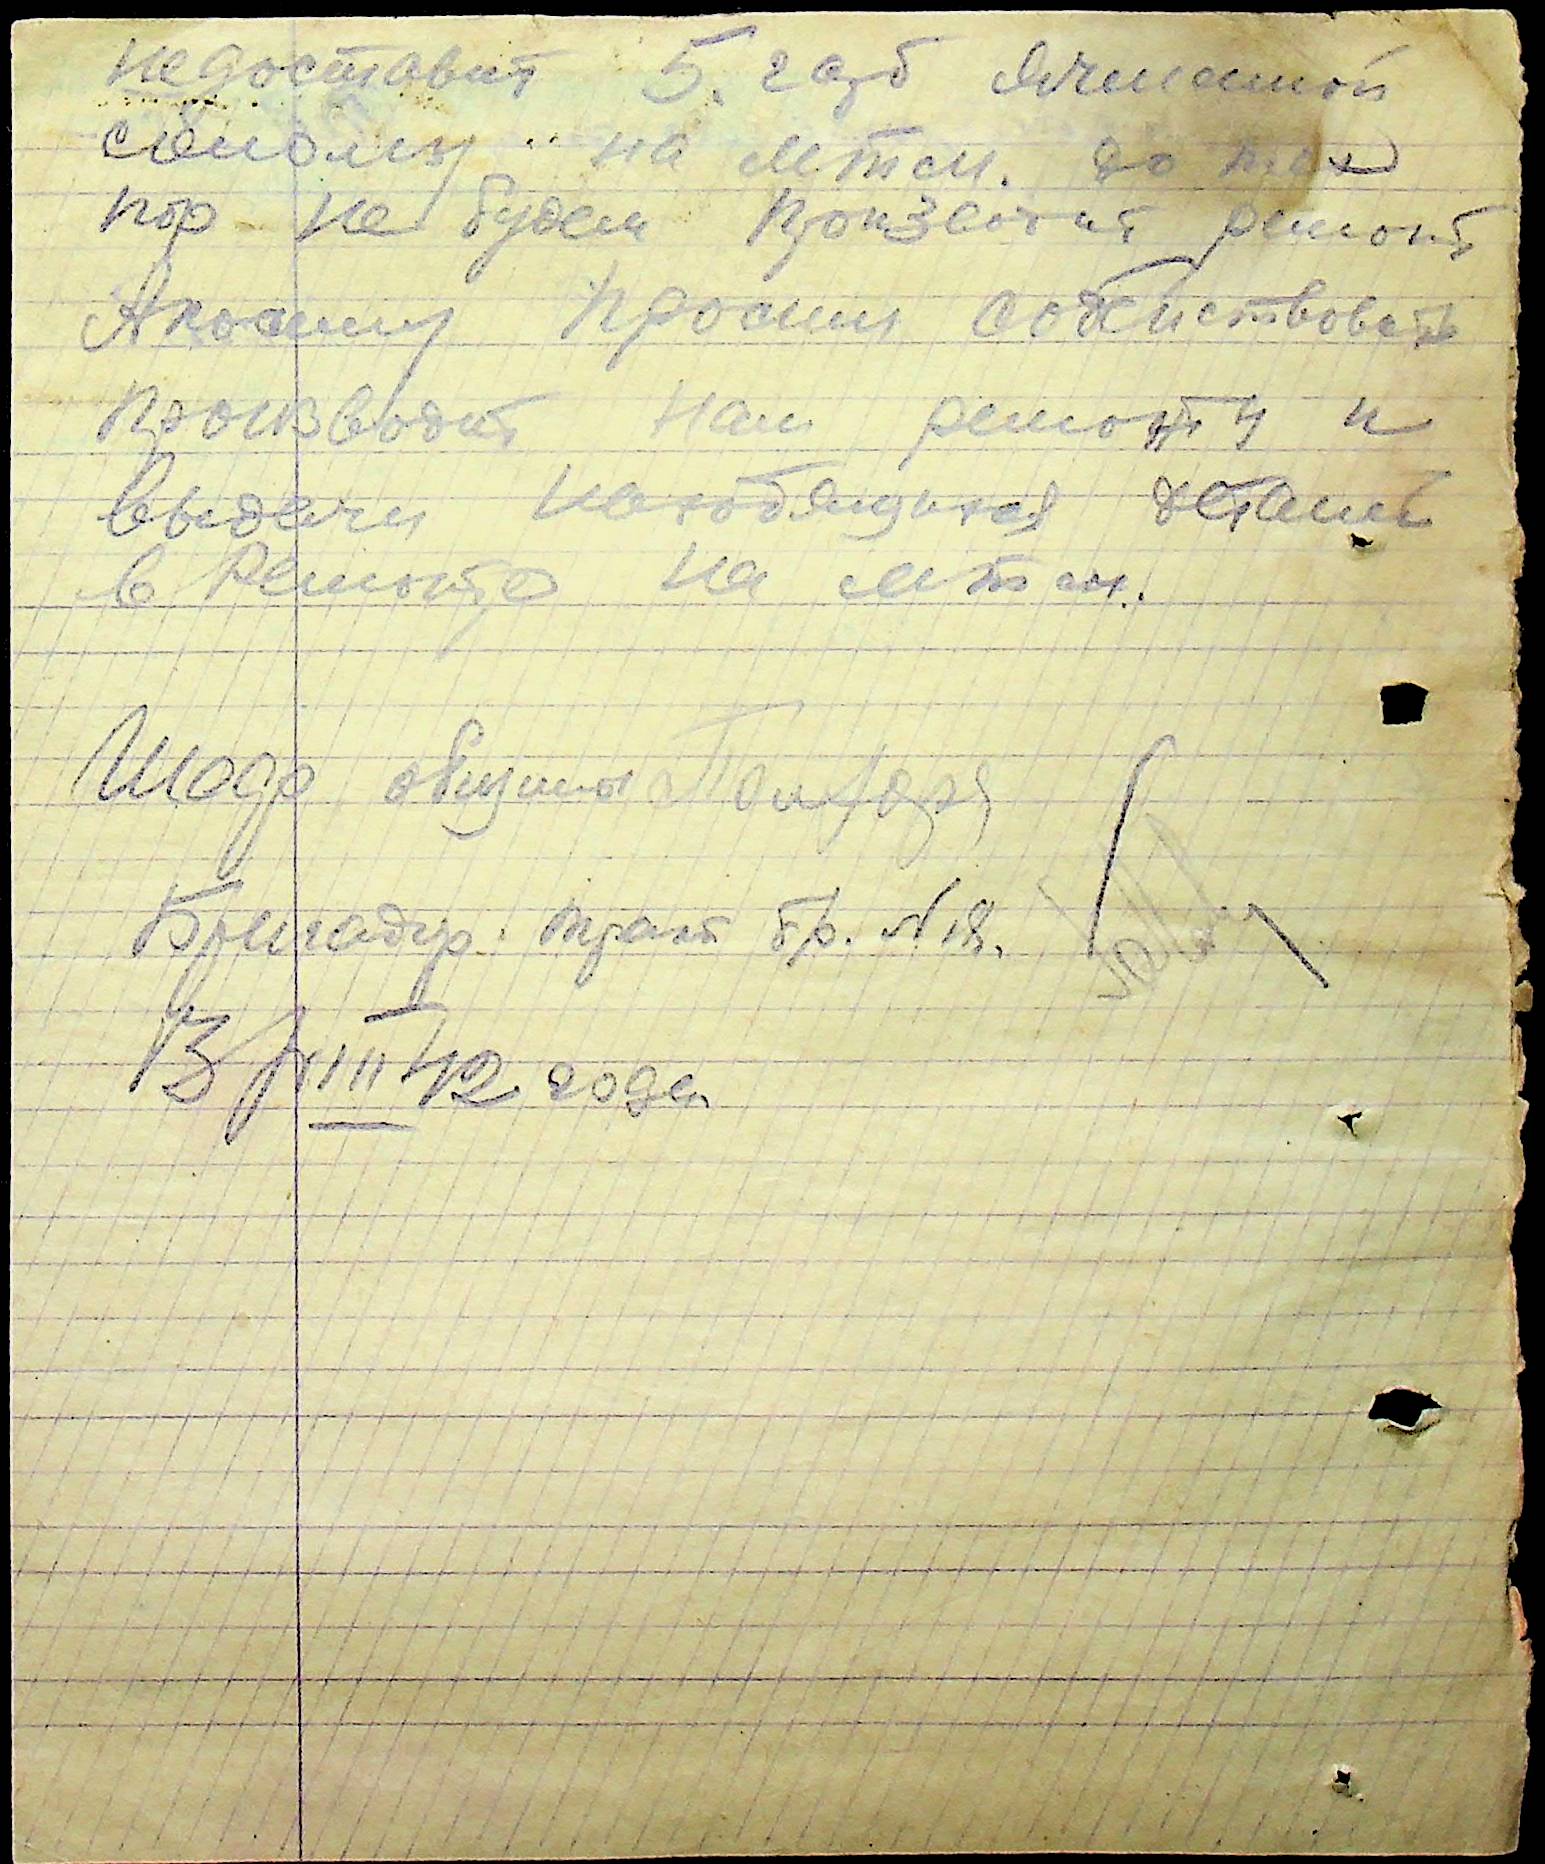 недоставит 5. гарб ячменной
соломы на мтсм. до тех
пор не будем производит ремонт
Апосему просим содействовать
производит нам ремонту и
выдачи необходимой деталей
в ремонто на мтсм.
Шодр общины
Бригадир тракт бр. N 18.
13/VIII 42 года